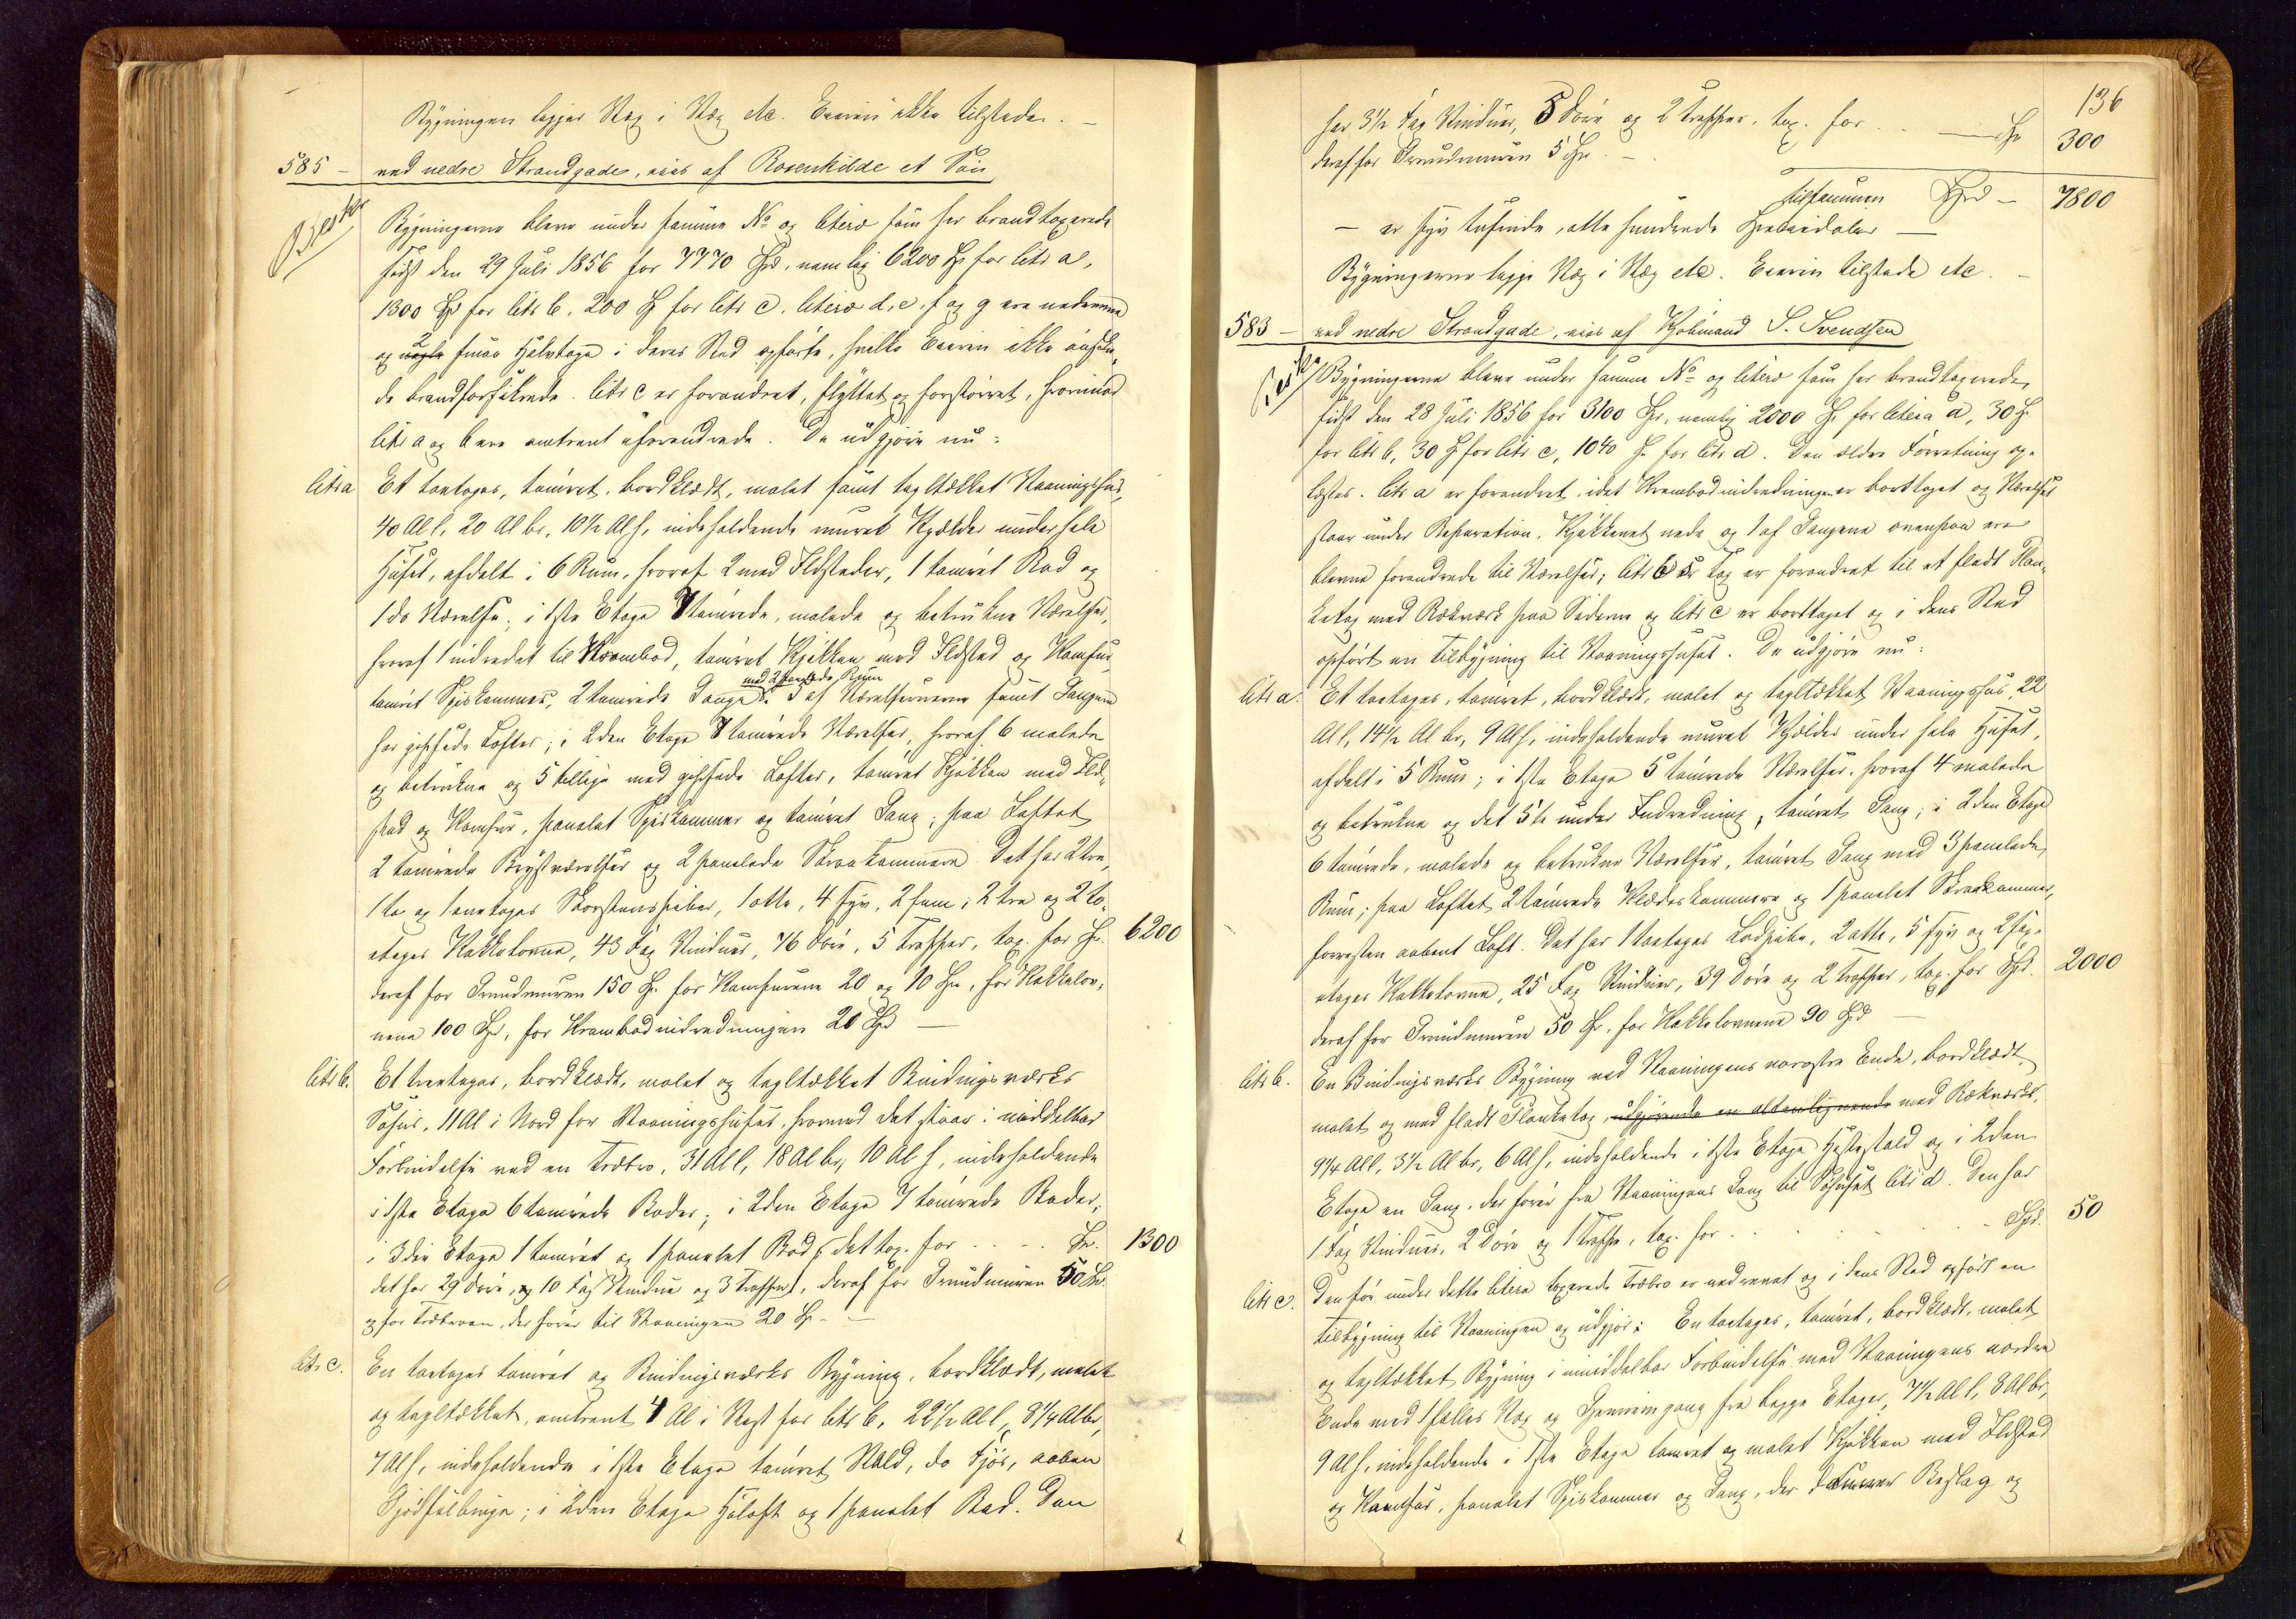 Bygningen ligger Væg i Væg etc. Eieren ikke tilstede. —
585 — ved nedre Strandgade, eies af Rosenkilde et Søn
Bygningerne bleve under samme No og litera som her brandtaxerede
sidst den 29 Juli 1856 for 7770 Spd, nemlig 6200 Sp for litr a,
1300 Spd for litr b, 200 Sp for litr c. litera d, e, f og g ere nedrevne
og 2 smaa Halvtage i deres Sted opførte, hvilke Eieren ikke ønske-
de brandforsikrede. litr c er forandret, flyttet og forstørret, hvorimod
litr a og b ere omtrent uforandrede. De udgjøre nu:
litr a Et toetages, tømret, bordklædt, malet samt tagltækket Vaaningshus,
40 Al l, 20 Al br, 10½ Al h, indeholdende muret Kjælder under hele
Huset, afdelt i 6 Rum, hvoraf 2 med Ildsteder, 1 tømret Bod og
1 do Værelse; i 1ste Etage 8 tømrede, malede og betrukne Værelser,
hvoraf 1 indredet til Krambod, tømret Kjøkken med Ildsted og Komfur,
med 2 Rum
tømret Spiskammer, 2 tømrede Gange. 5 af Værelserne samt Gangene
har gipsede Lofter; i 2den Etage 8 tømrede Værelser, hvoraf 6 malede
og betrukne og 5 tillige med gipsede Lofter, tømret Kjøkken med Ild-
sted og Komfur, panelet Spiskammer og tømret Gang; paa Loftet
2 tømrede Kvistværelser og 2 panelede Skraakammere. Det har 2 tre,
1 to og 1 enetages Skorstenspiber, 1 otte, 4 syv, 2 fem, 2 tre og 2 to-
etages Kakkelovne, 43 Fag Vinduer, 76 Døre, 5 Trapper, tax. for Sp. 6200
deraf for Grundmuren 150 Sp. for Komfurene 20 og 10 Sp, for Kakkelov-
nene 100 Spd, for Krambodindredningen 20 Spd —
litr b. Et treetages, bordklædt, malet og tagltækket Bindingsværks
Søhus, 11 Al i Nord for Vaaningshuset, hvormed det staar i middelbar
Forbindelse ved en Træbro, 31 Al l, 18 Al br, 10 Al h, indeholdende
i 1ste Etage 6 tømrede Boder; i 2den Etage 7 tømrede Boder;
i 3die Etage 1 tømret og 1 panelet Bod (det tax. for . . . . Sp. 1300
det har 29 Døre, og 10 Fag Vinduer og 3 Trapper), deraf for Grundmuren 50 Sp.
og for Træbroen, der fører til Vaaningen 20 Sp. —
litr c. En toetages tømret og Bindingsværks Bygning, bordklædt, malet
og tagltækket, omtrent 4 Al i Vest for litr b, 22½ Al l, 8¼ Al br,
7 Al h, indeholdende i 1ste Etage tømret Stald, do Fjøs, aaben
Gjødselbinge; i 2den Etage Høloft og 1 panelet Bod. Den
136
har 3½ Fag Vinduer, 5 Døre og 2 Trapper, tax. for . . — Sp 300
deraf for Grundmuren 5 Sp. —
tilsammen Spd — 7800
— er syv tusinde, otte hundrede Speciedaler —
Bygningerne ligge Væg i Væg etc. Eieren tilstede etc. —
583 — ved nedre Strandgade, eies af Kjøbmand S. Svendsen
Bygningerne bleve under samme No og litera som her brandtaxerede,
sidst den 28 Juli 1856 for 3100 Sp, nemlig 2000 Sp for litera a, 30 Sp
for litr b, 30 Sp for litr c, 1040 Sp for litr d. Den ældre Forretning op-
læstes. litr a er forandret, idet Krambodindredningen er borttaget og Værelset
staar under Reparation. Kjøkkenet nede og 1 af Gangene ovenpaa ere
blevne forandrede til Værelser; litr b's Tag er forandret til et fladt Plan-
ketag med Rækværk paa Siderne og litr c er borttaget og i dens Sted
opført en Tilbygning til Vaaningshuset. De udgjøre nu:
litr a. Et toetages, tømret, bordklædt, malet og tagltækket Vaaningshus, 22
Al l, 14½ Al br, 9 Al h, indeholdende muret Kjælder under hele Huset,
afdelt i 5 Rum; i 1ste Etage 5 tømrede Værelser, hvoraf 4 malede
og betrukne og det 5te under Indredning, tømret Gang; i 2den Etage
6 tømrede, malede og betrukne Værelser, tømret Gang med 3 panelede
Rum; paa Loftet 2 tømrede Klædeskammere og 1 panelet Skraakammer,
forresten aabent Loft. Det har 1 toetages Lodpibe, 2 otte, 5 syv og 2 sex-
etages Kakkelovne, 25 Fag Vinduer, 39 Døre og 2 Trapper, tax. for Spd. 2000
deraf for Grundmuren 50 Sp, for Kakkelovnene 90 Spd —
litr b. En Bindingsværks Bygning ved Vaaningens Ende, bordklædt,
malet og med fladt Planketag, udgjørende en altanlignende med Rækværk,
9¼ Al l, 3½ Al br, 6 Al h, indeholdende i 1ste Etage Hestestald og i 2den
Etage en Gang, der fører fra Vaaningens Gang til Søhuset litr d. Den har
1 Fag Vinduer, 2 Døre og 1 Trappe, tax. for . . . . . Spd. 50
litr c. Den før under dette litera taxerede Træbro er nedrevet og i dens Sted opført en
Tilbygning til Vaaningen og udgjør: En toetages, tømret, bordklædt, malet
og tagltækket Bygning i umiddelbar Forbindelse med Vaaningens nordre
Ende med 1 fælles Væg og Gjennemgang fra begge Etager, 7½ Al l, 8 Al br,
9 Al h, indeholdende i 1ste Etage tømret og malet Kjøkken med Ildsted
og Komfur, panelet Spiskammer og Gang, der danner Beslag og